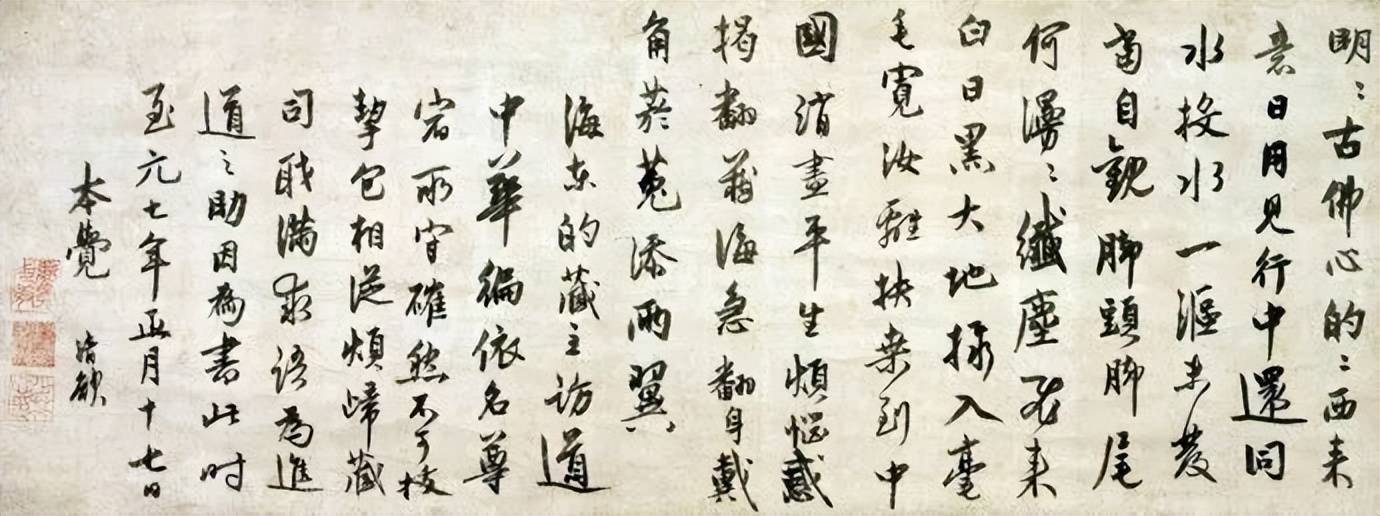 明〻古佛心的〻西来
意日用見行中還同
水投水一漚未發
當自觀脚頭脚尾
何漫〻纖塵飛来
白日黑大地攝入毫
毛寬汝離扶桒到中
國消盡平生煩惱惑
揭翻藏海急翻身戴
角菸菟添兩翼
海東的藏主訪道
中華徧依名尊
宿所守確然不可拔
挈包相從煩歸藏
司職滿求語為進
道之助因為書此时
至元七年正月十七日
本覺 清欲